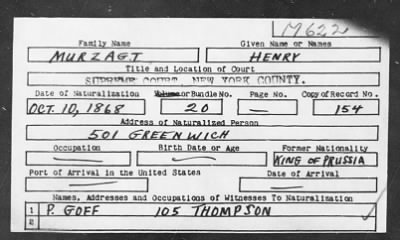 M622
Family Name Given Name or Names
MURZAGT HENRY
Title and Location of Court
SUPREME COURT, NEW YORK COUNTY.
Date of Naturalization Volume or Bundle No. Page No. Copy of Record No.
OCT. 10, 1868 20 — 154
Address of Naturalized Person
501 GREENWICH
Occupation Birth Date or Age Former Nationality
KING OF PRUSSIA
Port of Arrival in the United States Date of Arrival
Names, Addresses and Occupations of Witnesses To Naturalization
1 P. GOFF 105 THOMPSON
2